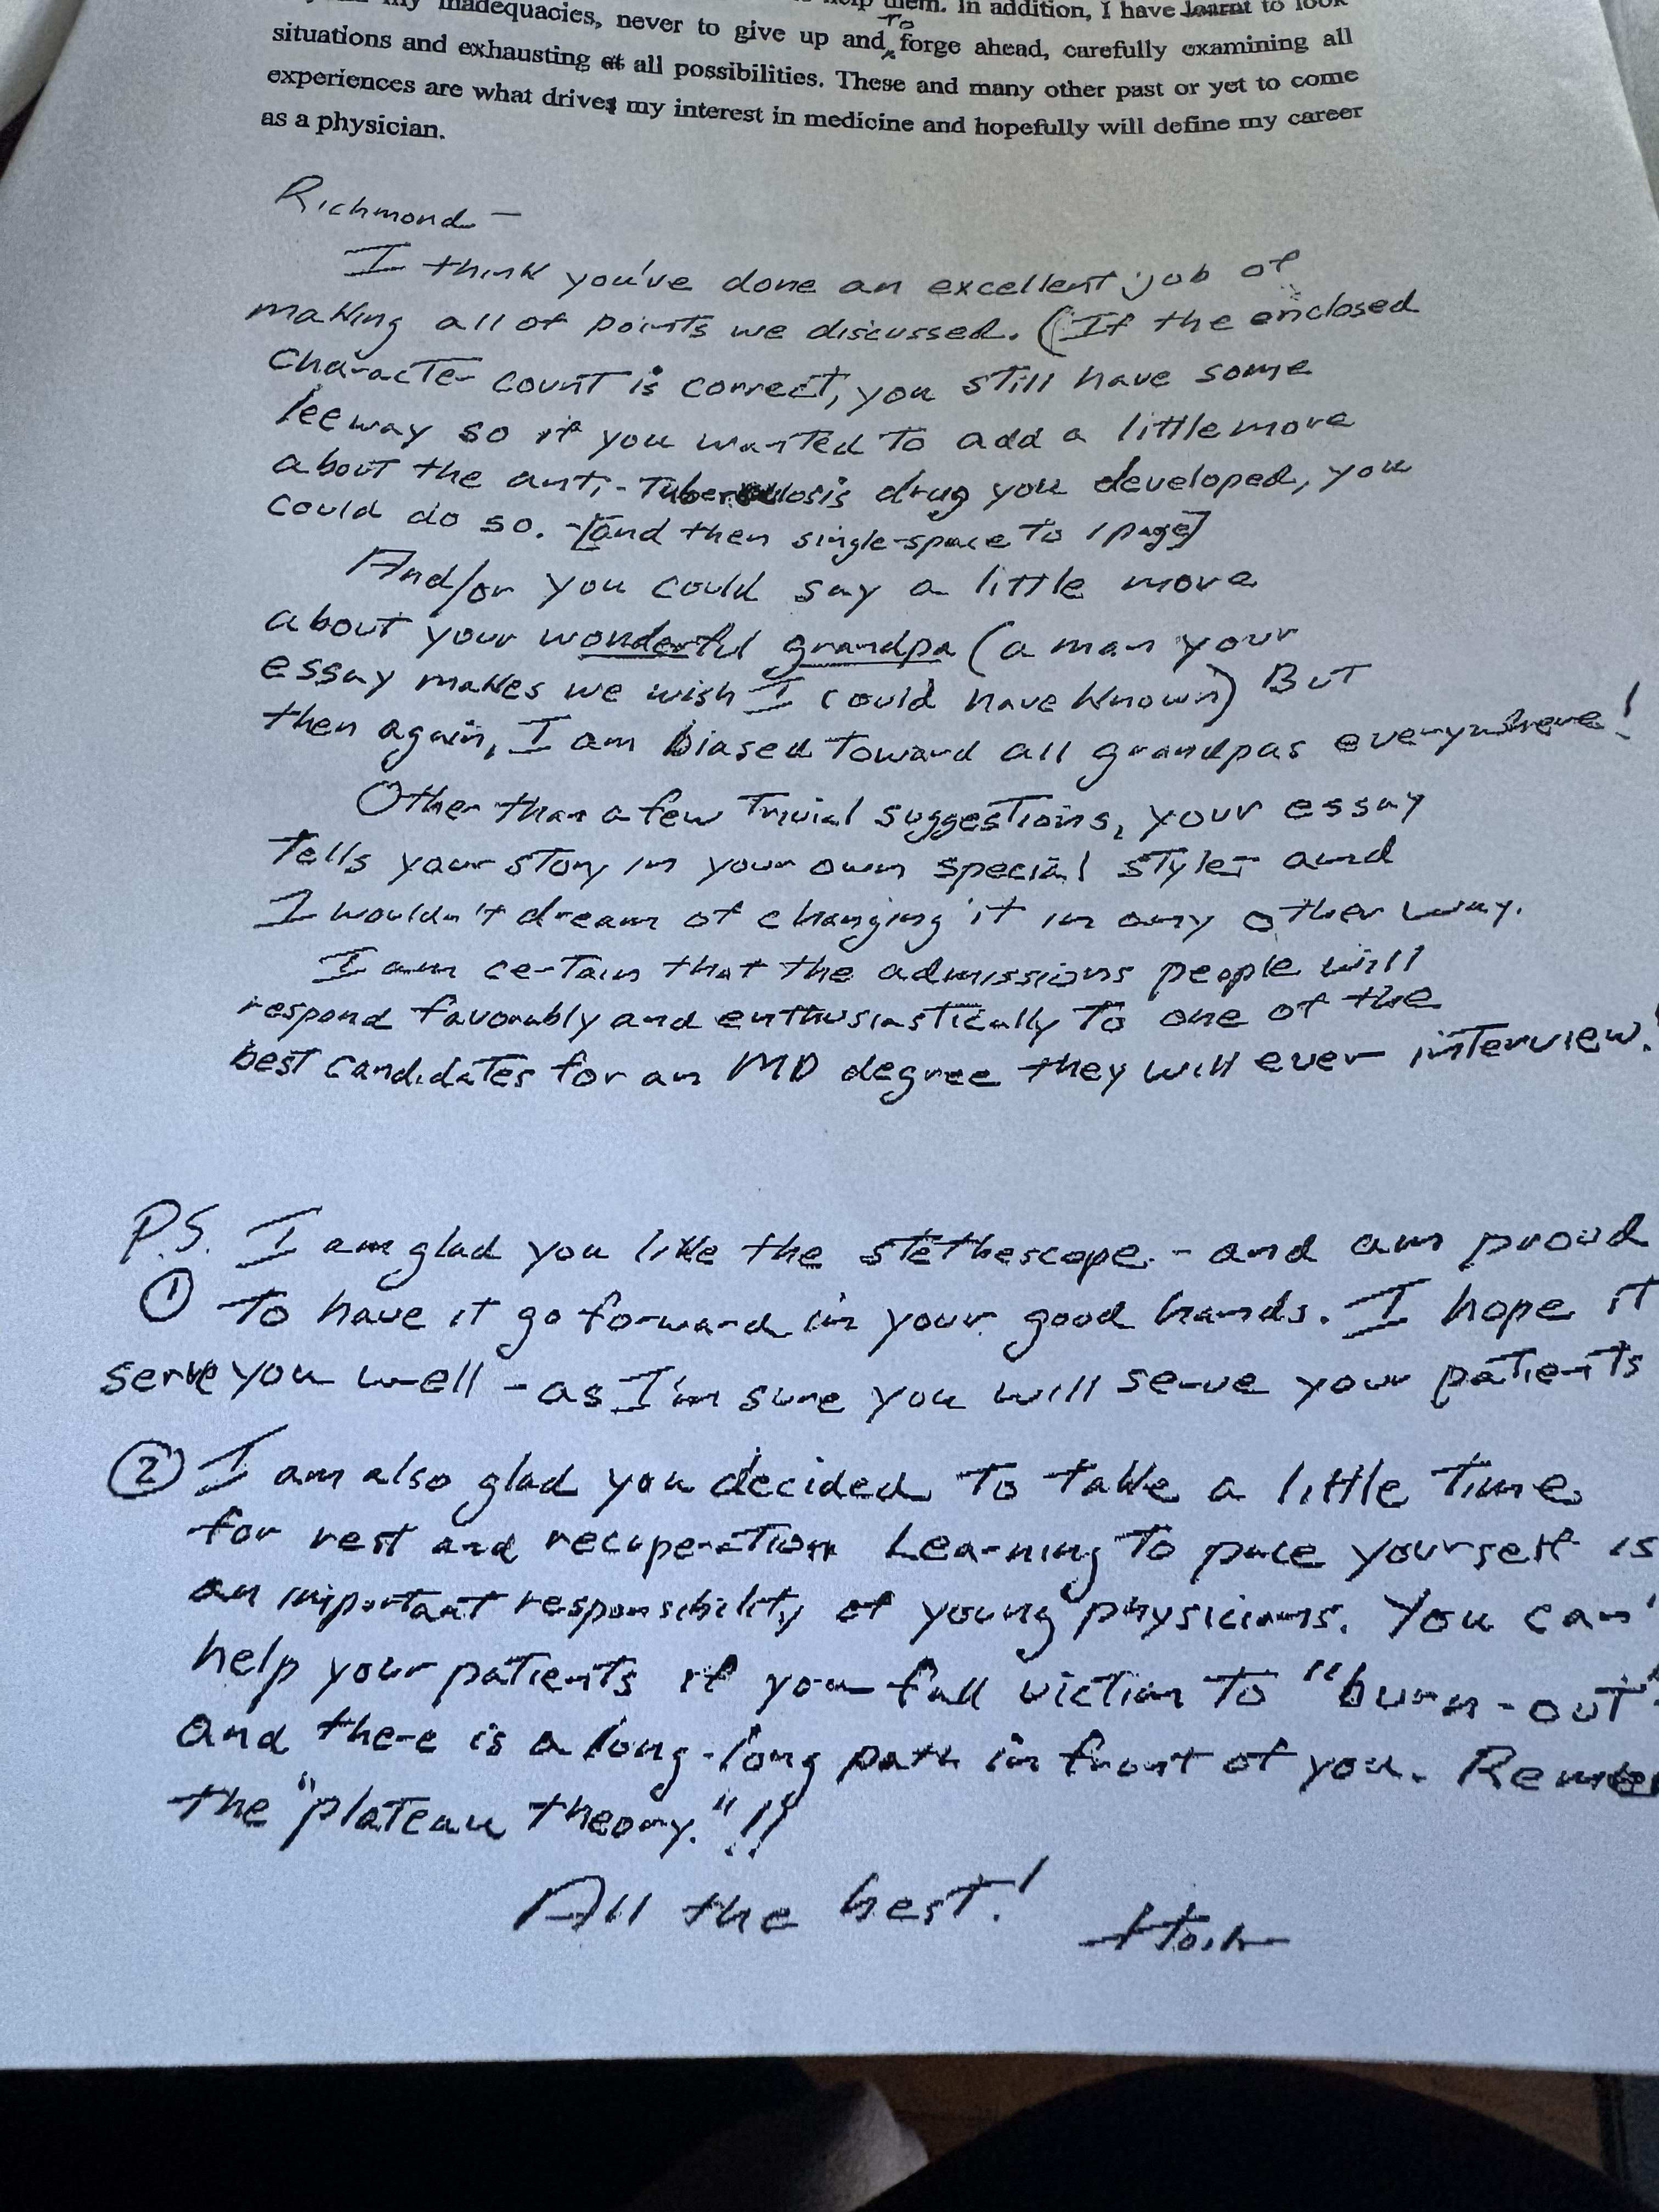 inadequacies, never to give up and to forge ahead, carefully examining all
them. In addition, I have learnt to look
situations and exhausting at all possibilities. These and many other past or yet to come
experiences are what drives my interest in medicine and hopefully will define my career
as a physician.
Richmond –
I think you've done an excellent job of
making all of points we discussed. (If the enclosed
character count is correct, you still have some
leeway so if you wanted to add a little more
about the anti-tuberculosis drug you developed, you
could do so. - [and then single-space to 1 page]
And/or you could say a little more
about your wonderful grandpa (a man your
essay makes we wish I could have known) But
then again, I am biased toward all grandpas everywhere!
Other than a few trivial suggestions, your essay
tells your story in your own special style – and
I wouldn't dream of changing it in any other way.
I am certain that the admissions people will
respond favorably and enthusiastically to one of the
best candidates for an MD degree they will ever interview!
P.S. I am glad you like the stethescope - and am proud
① to have it go forward in your good hands. I hope it
serve you well - as I'm sure you will serve your patients
② I am also glad you decided to take a little time
for rest and recuperation Learning to pace yourself is
an important responsibility of young physicians. You can'
help your patients if you fall victim to "burn-out"
and there is a long-long path in front of you. Remember
the "plateau theory."!!
All the best!